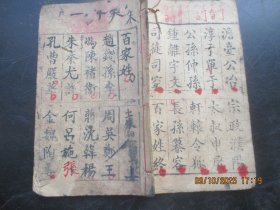 澹臺公冶 宗政濮陽
淳于單于 太叔申屠
公孫仲孫 軒轅令狐
鍾離宇文 長孫慕容
司徒司空 百家姓終
百家姓
趙錢孫李 周吳鄭王
馮陳褚衛 蔣沈韓楊
朱秦尤許 何呂施張
孔曹嚴華 金魏陶姜